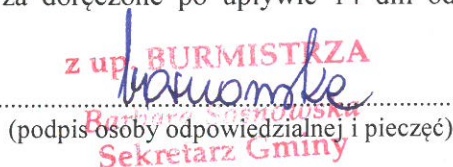 za doręczone po upływie 14 dni od
z up. BURMISTRZA
Barbara Sosnowska
(podpis osoby odpowiedzialnej i pieczęć)
Sekretarz Gminy